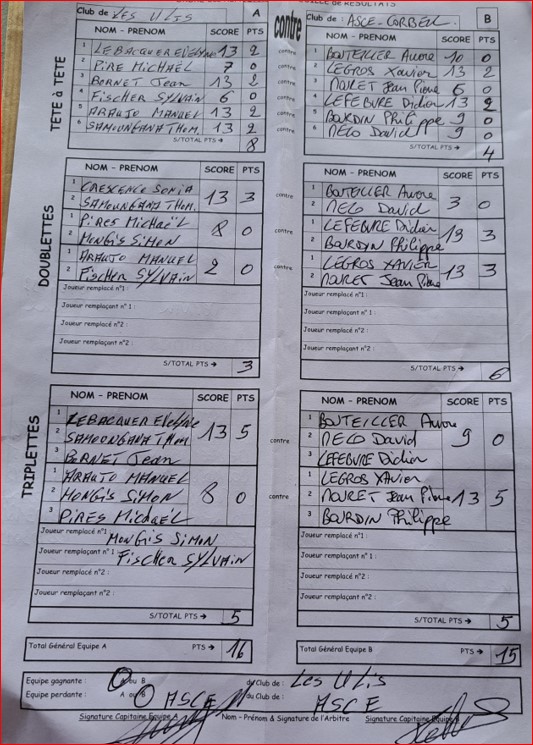 FEUILLE DE RESULTATS
Club de Les ULis A contre Club de : ASCE-CORBEIL B
TETE à TETE
NOM - PRENOM SCORE PTS
1 LEBACQUER EVElyne 13 2 contre 1 BOUTEILLER Aurore 10 0
2 PiRE MicHAËL 7 0 contre 2 LEGROS Xavier 13 2
3 BERNET Jean 13 2 contre 3 MOURET Jean Pierre 6 0
4 FiScHer SyLVAiN 6 0 contre 4 LEFEBURE Didier 13 2
5 ARAUJO MANUEL 13 2 contre 5 BOURDIN PhiLippe 9 0
6 SAMOUNGANA THOM. 13 2 contre 6 MELO David 9 0
S/TOTAL PTS → 8 S/TOTAL PTS → 4
DOUBLETTES
NOM - PRENOM SCORE PTS NOM - PRENOM SCORE PTS
1 CRESCENCE SONiA 13 3 contre 1 BOUTEILLER Aurore 3 0
2 SAMOUNGANA THOM. 2 MELO David
1 PiRES MicHaËL 8 0 contre 1 LEFEBURE Didier 13 3
2 MONGiS SiMON 2 BOURDIN Philippe
1 ARAUJO MANUEL 2 0 contre 1 LEGROS XAVIER 13 3
2 FiScHer SYLVAiN 2 MOURET Jean Pierre
Joueur remplacé n°1 : Joueur remplacé n°1 :
Joueur remplaçant n° 1 : Joueur remplaçant n° 1 :
Joueur remplacé n°2 : Joueur remplacé n°2 :
Joueur remplaçant n°2 : Joueur remplaçant n°2 :
S/TOTAL PTS → 3 S/TOTAL PTS → 6
TRIPLETTES
NOM - PRENOM SCORE PTS NOM - PRENOM SCORE PTS
1 LEBACQUER EVElyne 1 BOUTEILLER Aurore
2 SAMOUNGANA THOM 13 5 contre 2 MELO David 9 0
3 BERNET Jean 3 LEFEBURE Didier
1 ARAUJO MANUEL 1 LEGROS XAVIER
2 MONGiS SiMON 8 0 contre 2 MOURET Jean Pierre 13 5
3 PiRES MicHaËL 3 BOURDIN Philippe
Joueur remplacé n°1 : MONGiS SiMON Joueur remplacé n°1 :
Joueur remplaçant n°1 : FiScHer SYLVAiN Joueur remplaçant n°1 :
Joueur remplacé n°2 : Joueur remplacé n°2 :
Joueur remplaçant n°2 : Joueur remplaçant n°2 :
S/TOTAL PTS → 5 S/TOTAL PTS → 5
Total Général Equipe A PTS → 16 Total Général Equipe B PTS → 15
Equipe gagnante : A ou B du Club de : Les ULis
Equipe perdante : A ou B ASCE du Club de : ASCE
Signature Capitaine Equipe A Nom - Prénom & Signature de l'Arbitre Signature Capitaine Equipe B